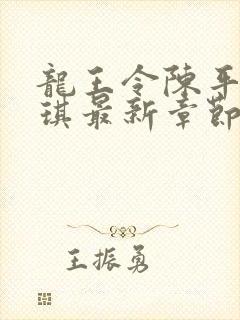 龍王令陳平
琪最新章節
王振勇